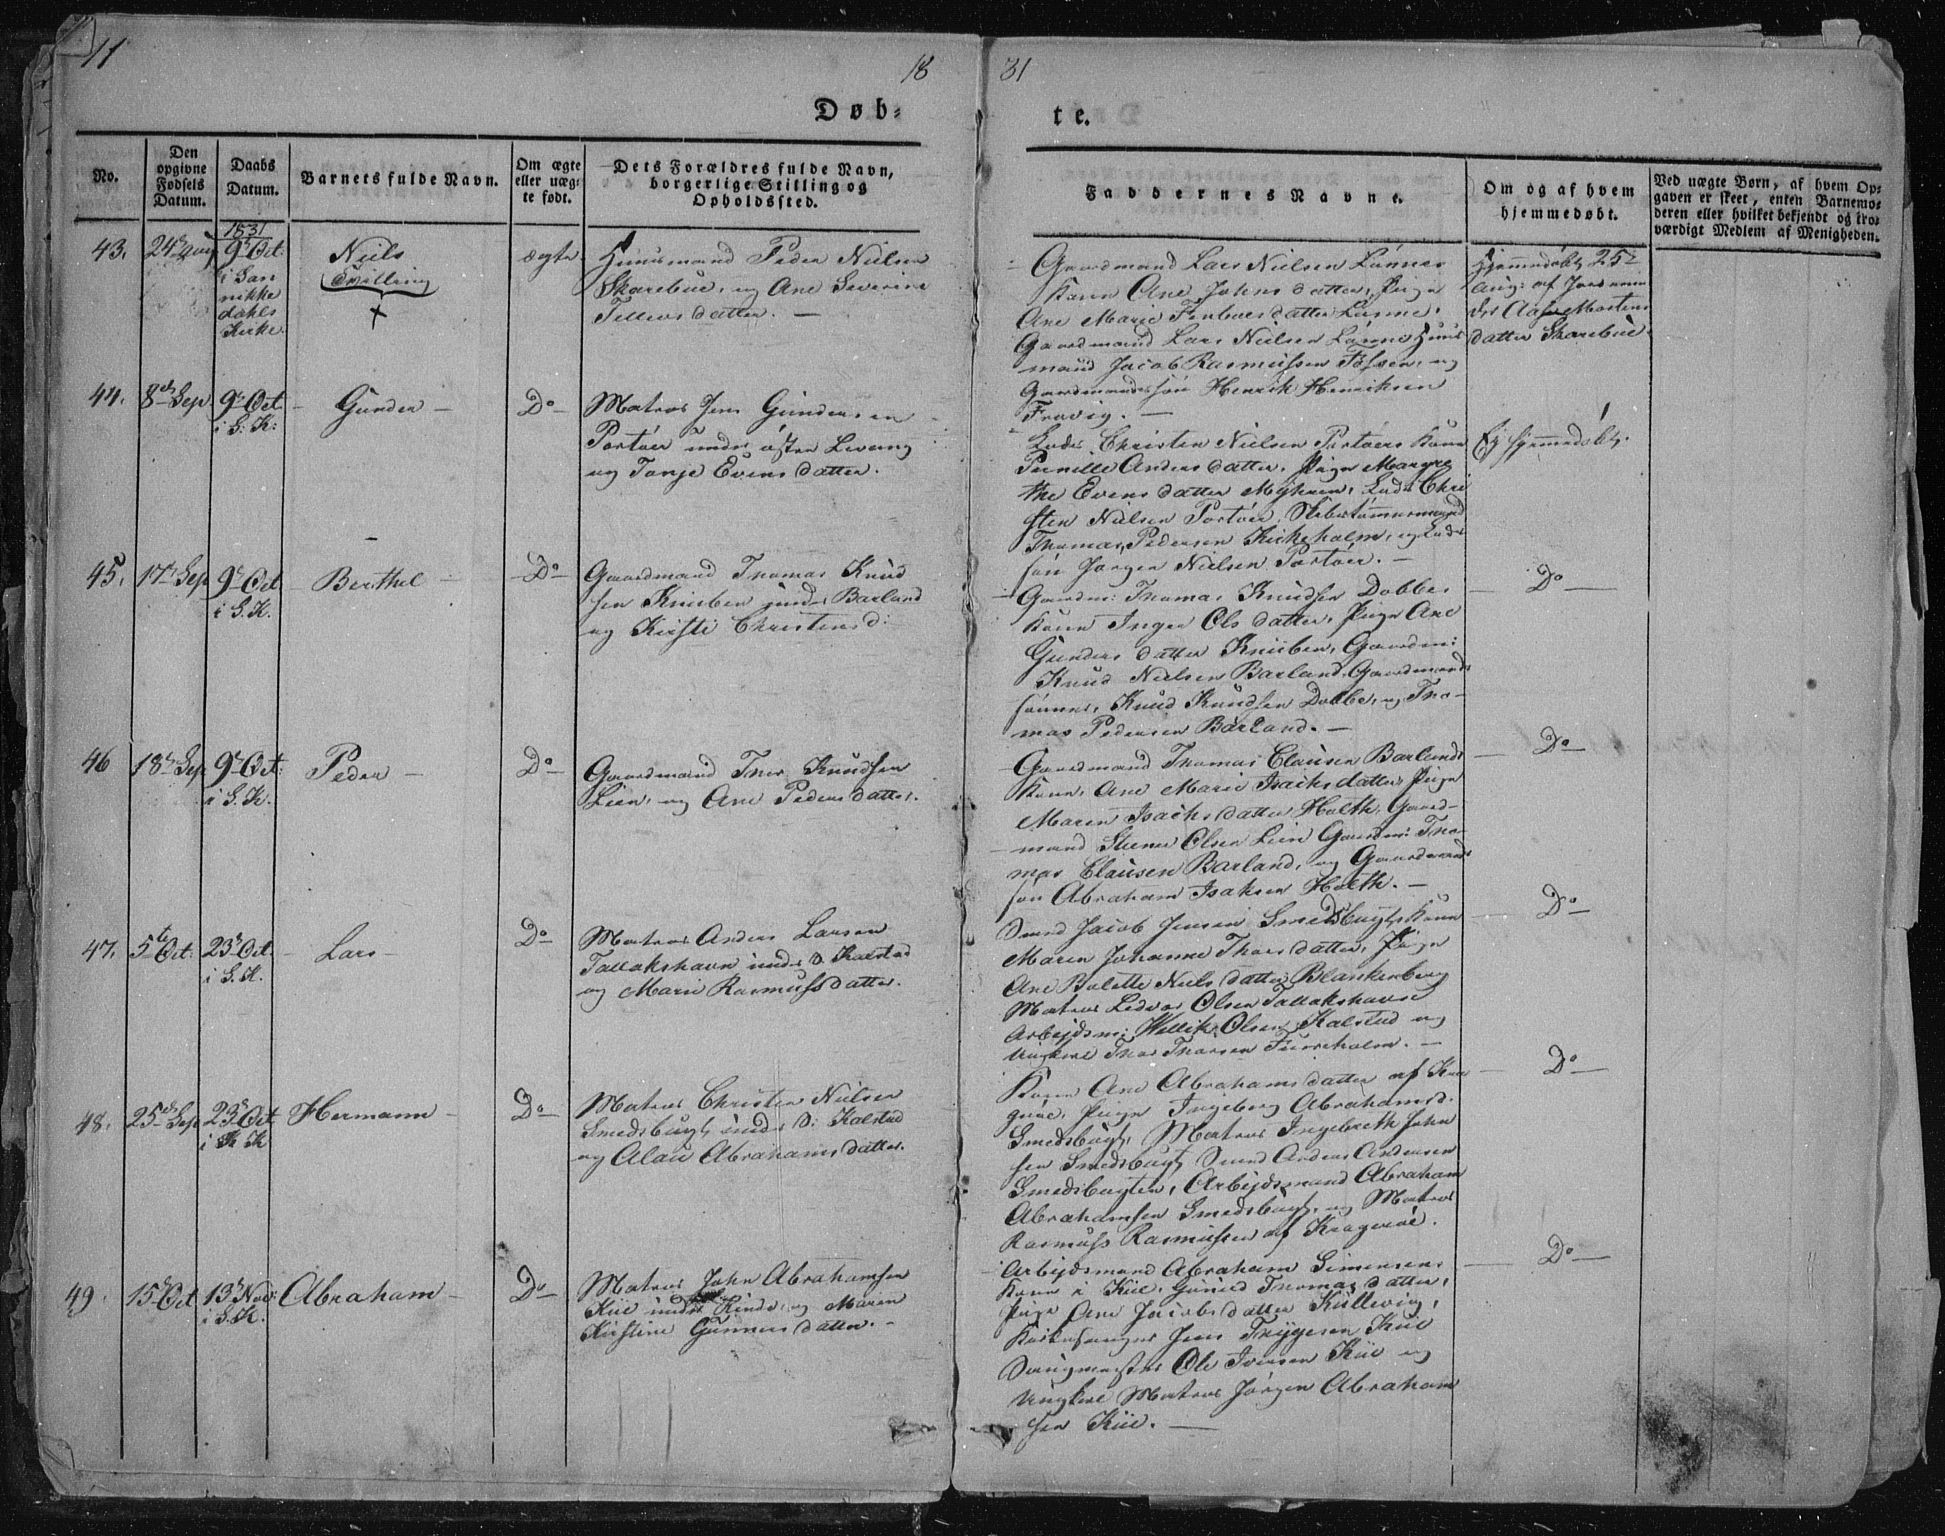 11
18
31
Døb=
te.
No.
Den
opgivne
Fødsels
Datum.
Daabs
Datum.
Barnets fulde Navn.
Om ægte
eller uæg=
te født.
Dets Forældres fulde Navn,
borgerlige Stilling og
Opholdssted.
Faddernes Navne.
Om og af hvem
hjemmedøbt.
Ved uægte Børn, af hvem Op=
gaven er skeet, enten Barnemo=
deren eller hvilket bekjendt og tro=
værdigt Medlem af Menigheden.
1831
43. 24de Aug 9de Oct:
i San
nikke
dahls
Kirke.
Niels
Tvilling
ægte
Huusmand Peder Nielsen
Skarebue, og Ane Severine
Tellevsdatter. —
Gaardmand Lars Nielsen Lønnes
Kone Ane Johnsdatter, Pige
Ane Marie
Gaardmand Lars Nielsen Lønne Huus
mand Jacob Rasmussen Fossen, og
Gaardmandssøn Henrik Henriksen
Frovig. —
Hjemmedøbt 25de
Aug: af Jordemo
Mortens
datter Skarebue.
44. 8de Sep. 9de Oct.
i S: K:
Gunder —
Do —
Matros Jens Gundersen
Portøer under østre Levang
og Tonje Evensdatter.
Lods Christen Nielsen Portøers Kone
Pernille Andersdatter, Pige Margre
the Evensdatter Myhren, Lods Chri
sten Nielsen Portøer, Skibstømmermand
Thomas Pedersen Kirkeholm, og Lods
søn Jørgen Nielsen Portøer. —
Ej hjemmedøbt.
45. 17de Sep 9de Oct
i S. K.
Berthel —
Do —
Gaardmand Thomas Knud
sen Knieben under Barland
og Kirsti Christensd:
Gaardm: Thomas Knudsen Dobbes
Kone Inger Olsdatter, Pige Ane
Gundersdatter Knieben, Gaardm:
Knud Nielsen Barland, Gaardmands
sønner, Knud Knudsen Dobbe, og Tho—
mas Pedersen Barland. —
Do —
46 18de Sep 9de Oct:
i S. K.
Peder —
Do —
Gaardmand Thor Knudsen
Lien, og Ane Pedersdatter.
Gaardmand Thomas Clausen Barlands
Kone, Ane Marie Isachsdatter, Pige
Maren Isachsdatter Holth, Gaard—
mand Steener Olsen Lien Gaardm: Tho—
mas Clausen Barland, og Gaardmands
søn Abraham Isaksen Holth. —
Do —
47. 5te Oct: 23de Oct.
i S. K.
Lars —
Do —
Matros Anders Larsen
Tallakshavn under D: Kalstad
og Marie Rasmusdatter.
Smed Jacob Jensen Smedsbugts Kone
Maren Johanne Thorsdatter, Pige
Ane Bolette Nielsdatter Blankenberg
Matros Ledvor Olsen Tallakshavn
Arbejdsm: Wellik Olsen Kalstad og
Ungkarl Thor Thorsen Furreholm. —
Do —
48. 25de Sep 23de Oct
i K K
Hermann —
Do —
Matros Christen Nielsen
Smedsbugt under D: Kalstad
og Alau Abrahamsdatter.
Kone Ane Abrahamsdatter af Kra
gerøe, Pige Ingeborg Abrahamsd.
Smedsbugt, Matros Ingebreth John
sen Smedsbugt Smed Anders Andersen
Smedsbugten, Arbejdsmand Abraham
Abrahamsen Smedsbugt, og Matros
Rasmus Rasmussen af Kragerøe.
Do —
49. 15de Oct 13de Nov:
i S. K.
Abraham —
Do —
Matros John Abrahamsen
Kiil under Rinde, og Maren
Kirstine Gunnersdatter. —
Arbejdsmand Abraham Simonsens
Kone i Kiil, Gunild Thomasdatter,
Pige Ane Jacobsdatter Küllevig,
Kirkesanger Jens Trygesen Kiil
Ole Iversen Kiil og
Ungkarl Matros Jørgen Abraham
sen Kiil. —
Do —